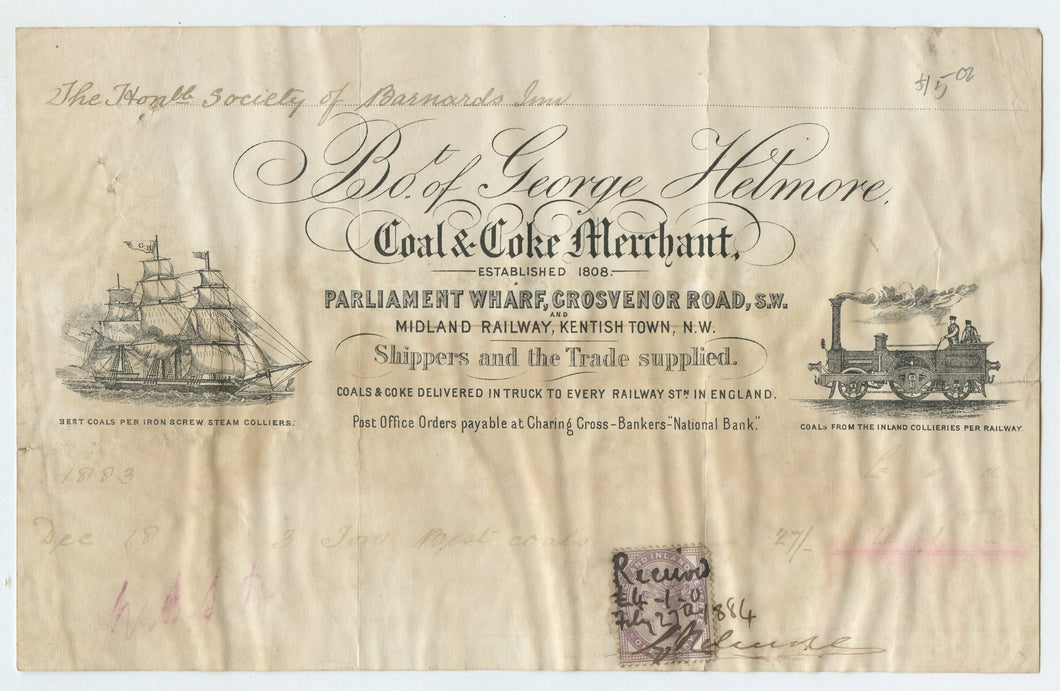 The Honble Society of Barnards Inn
Bot. of George Helmore.
Coal & Coke Merchant,
ESTABLISHED 1808.
PARLIAMENT WHARF, GROSVENOR ROAD, S.W.
AND
MIDLAND RAILWAY, KENTISH TOWN, N.W.
Shippers and the Trade supplied.
COALS & COKE DELIVERED IN TRUCK TO EVERY RAILWAY STN IN ENGLAND.
BEST COALS PER IRON SCREW STEAM COLLIERS.
Post Office Orders payable at Charing Cross-Bankers-"National Bank."
COALS FROM THE INLAND COLLIERIES PER RAILWAY
1883
£ s d
Dec 18 3 Ton Best coals 27/- 4 1 -
Received
£4-1-0
Feby 27th 1884
G Helmore